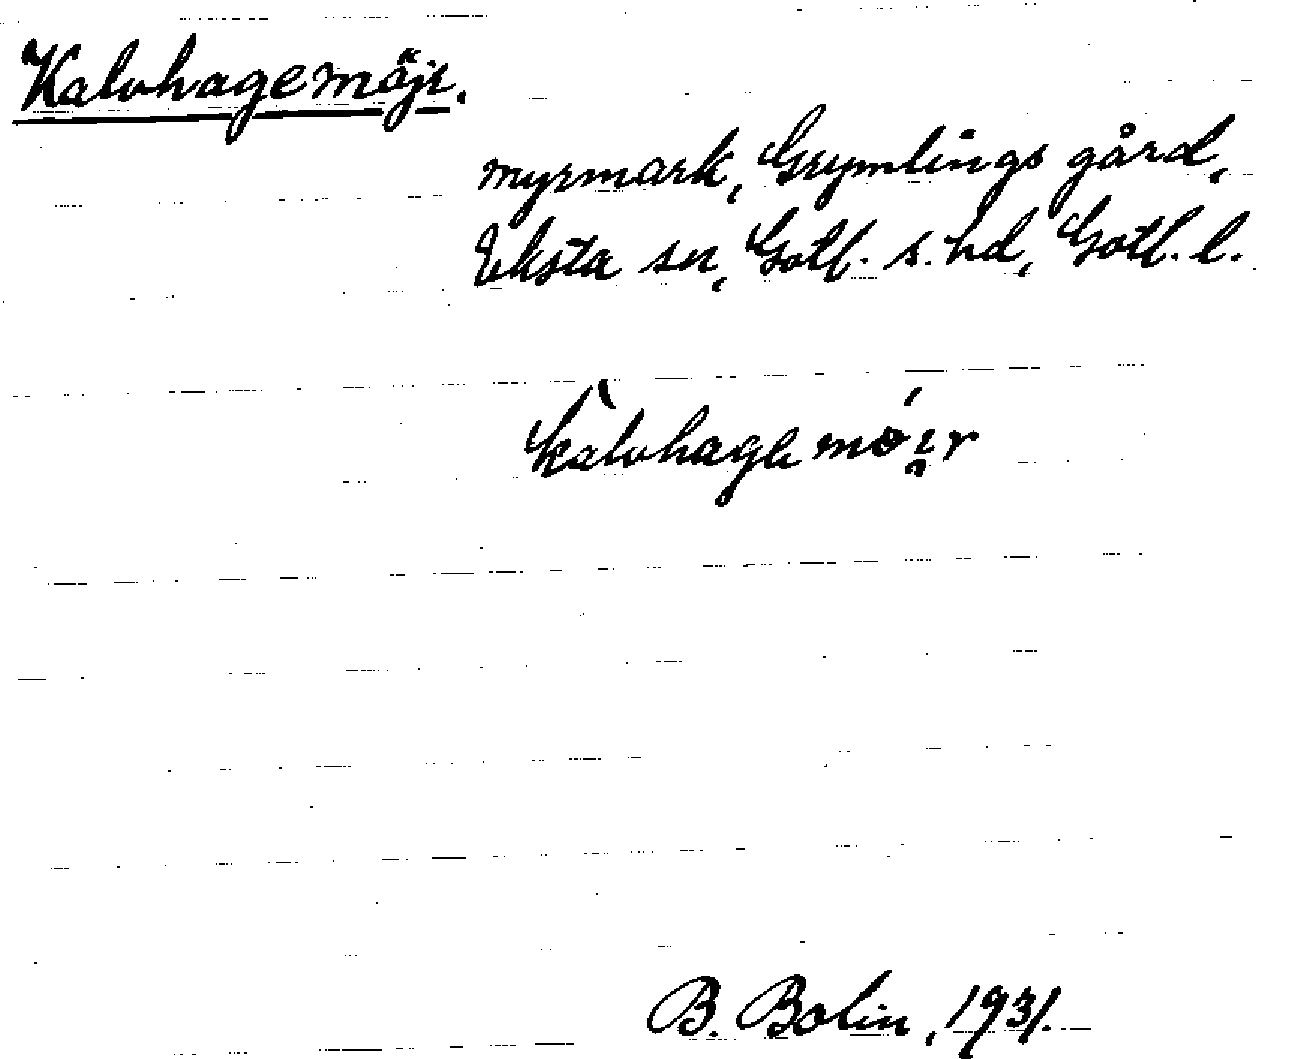 Kalvhagemöjr.
myrmark, Grymlings gård,
Eksta sn, Gotl. s. hd, Gotl. l.
kalvhagemoır
B. Bolin, 1931.